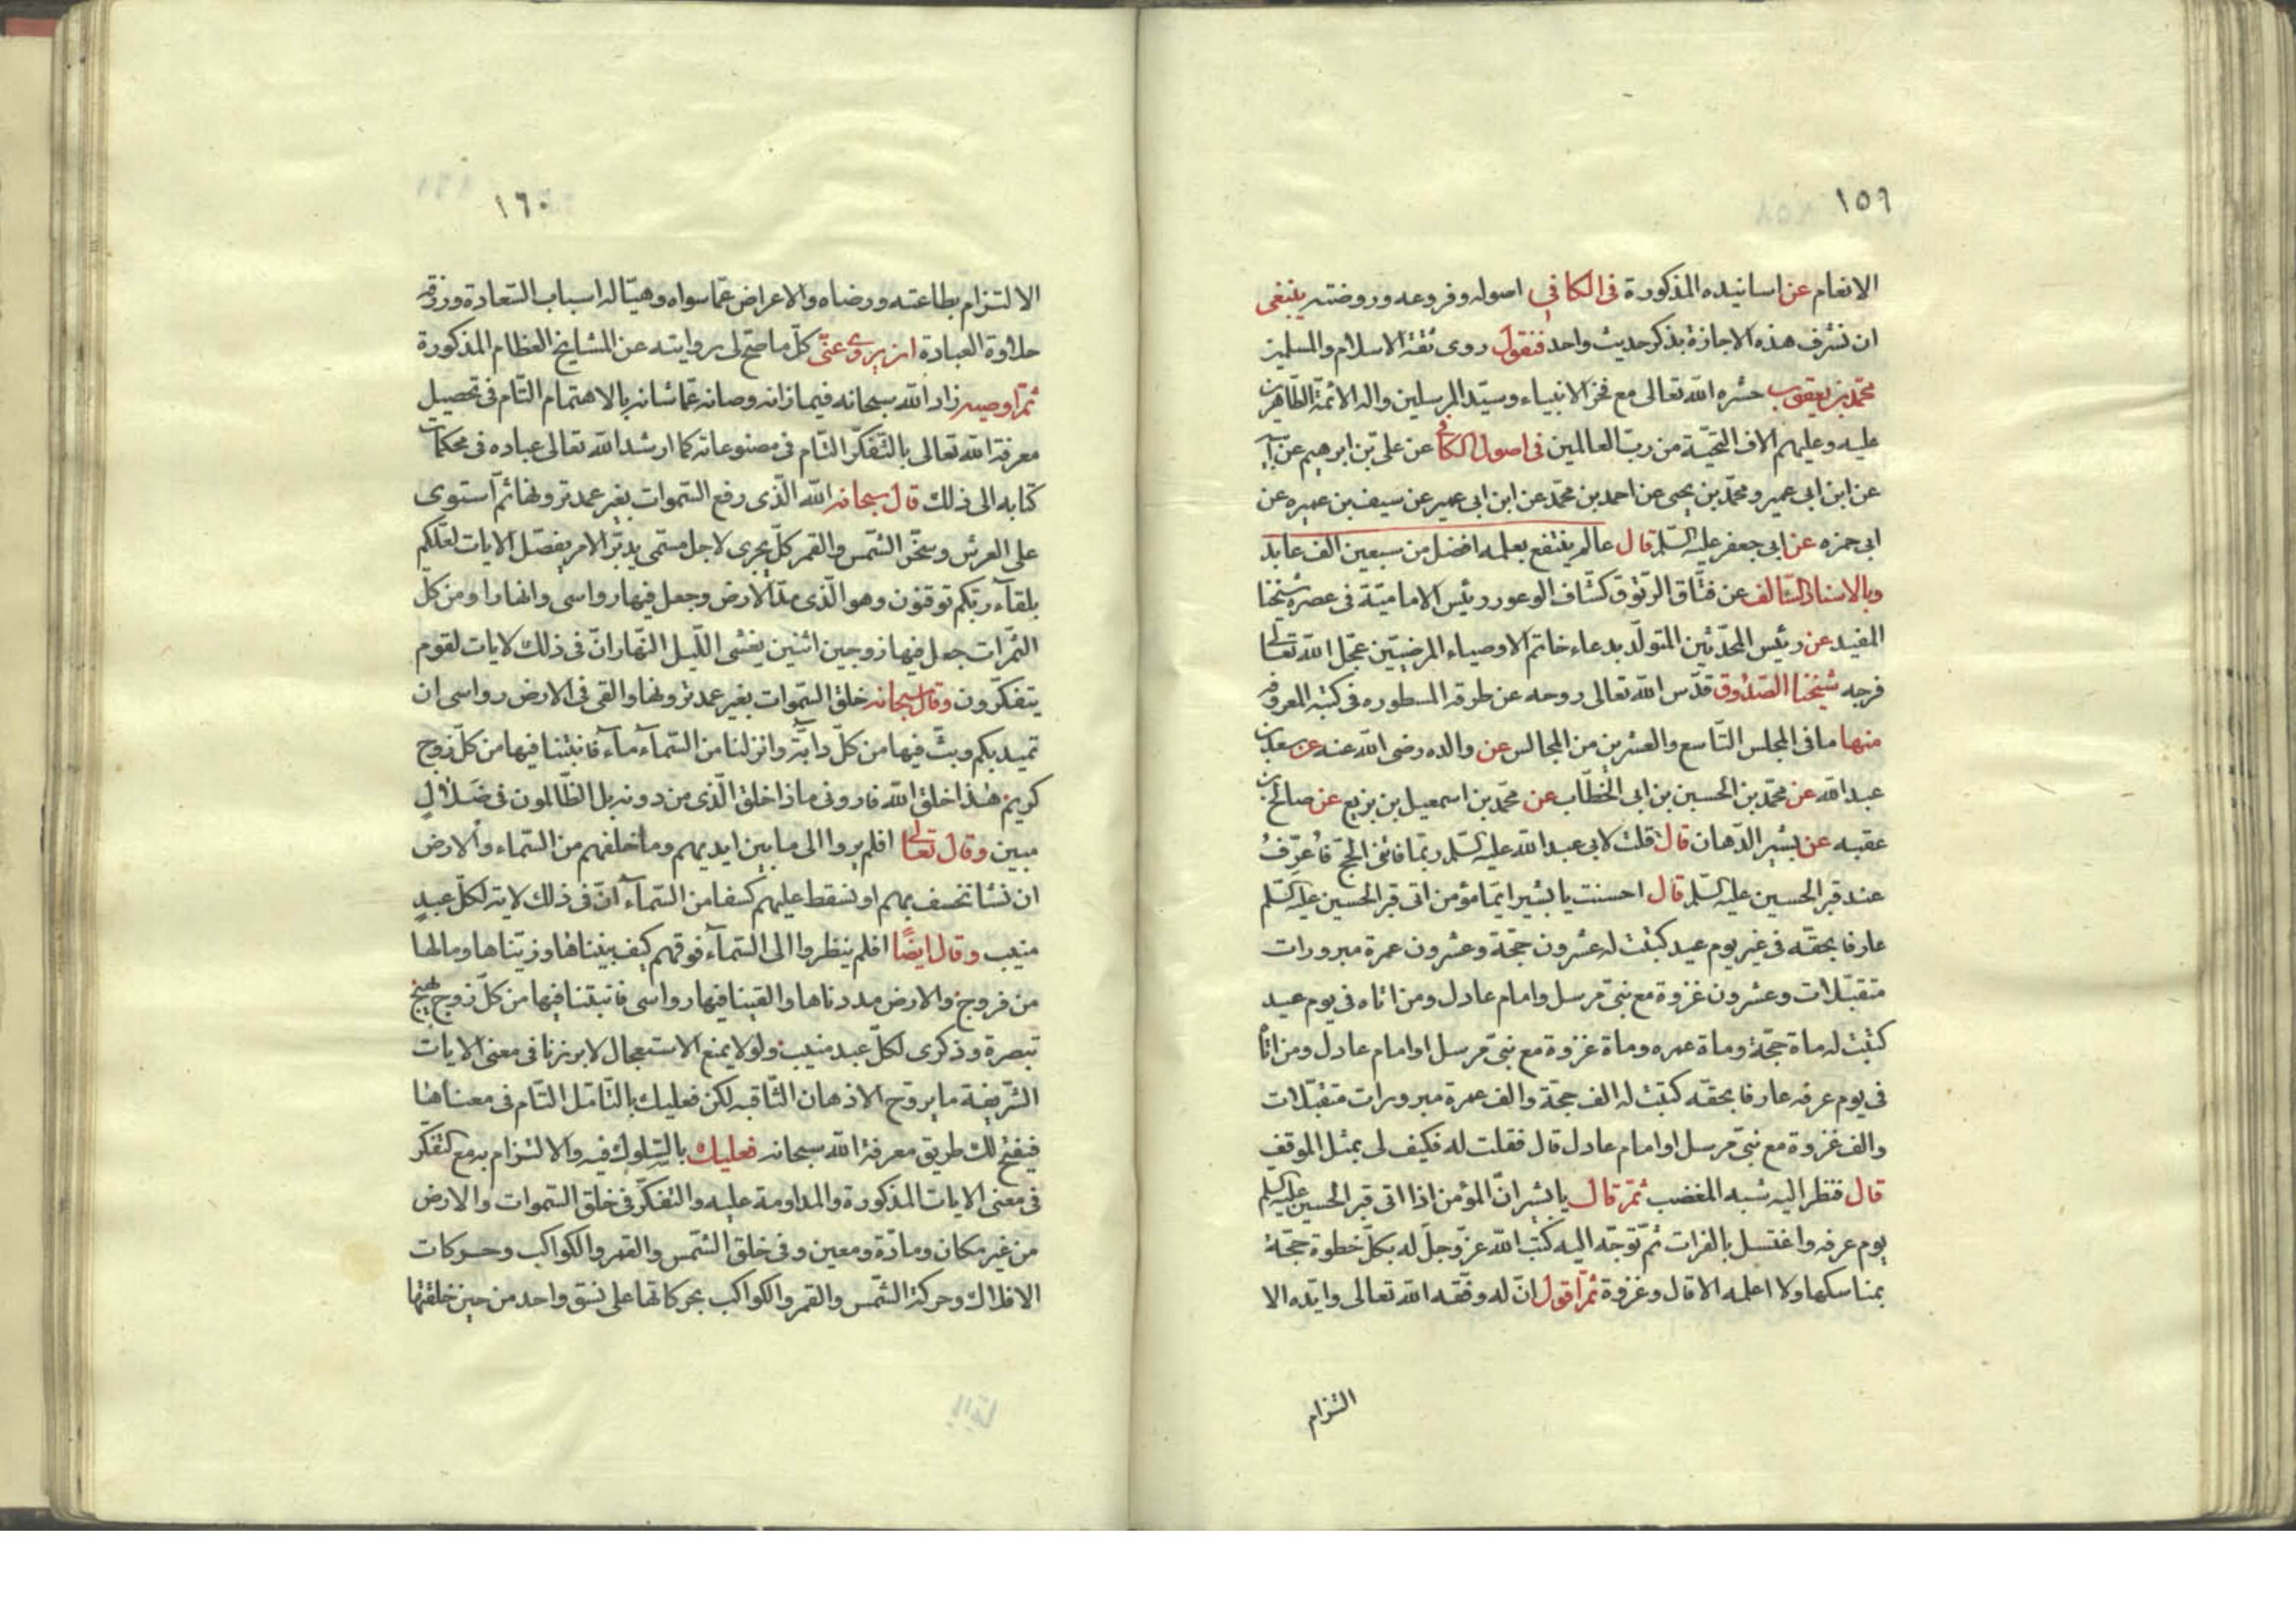 ١٥٩
الانعام عن اسانيده المذكورة فى الكافي اصوله وفروعه وروضته ينبغى
ان نشرف هذه الاجازة بذكر حديث واحد فنقول روى ثقة الاسلام والمسلمين
محمّد بن يعقوب حشره الله تعالى مع فخر الانبياء وسيّد المرسلين واله الائمة الطّاهرين
عليه وعليهم الاف التحيّة من ربّ العالمين فى اصول الكافى عن علىّ بن ابرهيم عن ابيه
عن ابن ابى عمير ومحمّد بن يحيى عن احمد بن محمّد عن ابن ابى عمير عن سيف بن عميره عن
ابى حمزه عن ابى جعفر عليه السّلم قال عالم ينتفع بعلمه افضل من سبعين الف عابد
وبالاسناد السّالف عن فتّاق الرّتوق كشّاف الوعور ورئيس الاماميّة فى عصره شيخنا
المفيد عن رئيس المحدّثين المتولّد بدعاء خاتم الاوصياء المرضيّين عجّل الله تعالى
فرجه شيخنا الصّدوق قدّس الله تعالى روحه عن طرقه المسطوره فى كتبه المعروفه
منها ما فى المجلس التّاسع والعشرين من المجالس عن والده رضى الله عنه عن سعد بن
عبد الله عن محمّد بن الحسين بن ابى الخطّاب عن محمّد بن اسمعيل بن بزيع عن صالح بن
عقبه عن بشير الدّهان قال قلت لابى عبد الله عليه السّلم ربّما فاتنى الحجّ فاُعرّفُ
عند قبر الحسين عليه السّلم قال احسنت يا بشير ايّما مؤمن اتى قبر الحسين عليه السّلم
عارفا بحقّه فى غير يوم عيد كتبت له عشرون حجّة وعشرون عمرة مبرورات
متقبّلات وعشرون غزوة مع نبىّ مرسل وامام عادل ومن اتاه فى يوم عيد
كتبت له ماة حجّة وماة عمره وماة غزوة مع نبىّ مرسل او امام عادل ومن اتاه
فى يوم عرفه عارفا بحقّه كتبت له الف حجّة والف عمرة مبرورات متقبّلات
والف غزوة مع نبىّ مرسل او امام عادل قال فقلت له فكيف لى بمثل الموقف
قال فنظر اليه شبه المغضب ثمّ قال يا بشر انّ المؤمن اذا اتى قبر الحسين عليه السلم
يوم عرفه واغتسل بالفرات ثم توجّه اليه كتب الله عزّ وجلّ له بكلّ خطوة حجّة
بمناسكها ولا اعلمه الا قال وغزوة ثمّ اقول انّ له وفّقه الله تعالى وايّده الا
التزام
١٦٠
الالتزام بطاعته ورضاه والاعراض عمّا سواه وهيّا له اسباب السّعادة ورزقه
حلاوة العبادة ان يروى عنّى كلّ ما صحّ لى روايته عن المشايخ العظام المذكورة
ثمّ اوصيه زاد الله سبحانه فيما زانه وصانه عمّا شانه بالاهتمام التّام فى تحصيل
معرفة الله تعالى بالتّفكّر التّام فى مصنوعاته كما ارشد الله تعالى عباده فى محكمات
كتابه الى ذلك قال سبحانه الله الّذى رفع السّموات بغير عمد ترونها ثم استوى
على العرش وسخّر الشّمس والقمر كلّ يجرى لاجل مسمّى يدبّر الامر يفصّل الايات لعلّكم
بلقآء ربّكم توقنون وهو الّذى مدّ الارض وجعل فيها رواسى وانهارا ومن كلّ
الثّمرات جعل فيها زوجين اثنين يغشى اللّيل النّهار انّ فى ذلك لايات لقوم
يتفكّرون وقال سبحانه خلق السّموات بغير عمد ترونها والقى فى الارض رواسى ان
تميد بكم وبثّ فيها من كلّ دابّة وانزلنا من السّمآء مآء فانبتنا فيها من كلّ زوج
كريم هذا خلق الله فارونى ماذا خلق الّذى من دونه بل الظّالمون فى ضَلالٍ
مبين وقال تعالى افلم يروا الى ما بين ايديهم وما خلفهم من السّماء والارض
ان نشا نخسف بهم او نسقط عليهم كسفا من السّمآء انّ فى ذلك لاية لكلّ عبدٍ
منيب وقال ايضًا افلم ينظروا الى السّمآء فوقهم كيف بنيناها وزيّناها وما لها
من فروج والارض مددناها والقينا فيها رواسى فانبتنا فيها من كلّ زوج بهيج
تبصرة وذكرى لكلّ عبد منيب ولولا يمنع الاستعجال لابرزنا فى معنى الايات
الشّريفة ما يروّح الاذهان الثّاقبه لكن فعليك بالتّامّل التّام فى معناها
فيفتح لك طريق معرفة الله سبحانه فعليك بالسّلوك فيه والالتزام به مع التّفكّر
فى معنى الايات المذكورة والمداومة عليه والتفكّر فى خلق السّموات والارض
من غير مكان ومادّة ومعين وفى خلق الشّمس والقمر والكواكب وحركات
الافلاك وحركة الشّمس والقمر والكواكب بحركاتها على نسق واحد من حين خلقتها